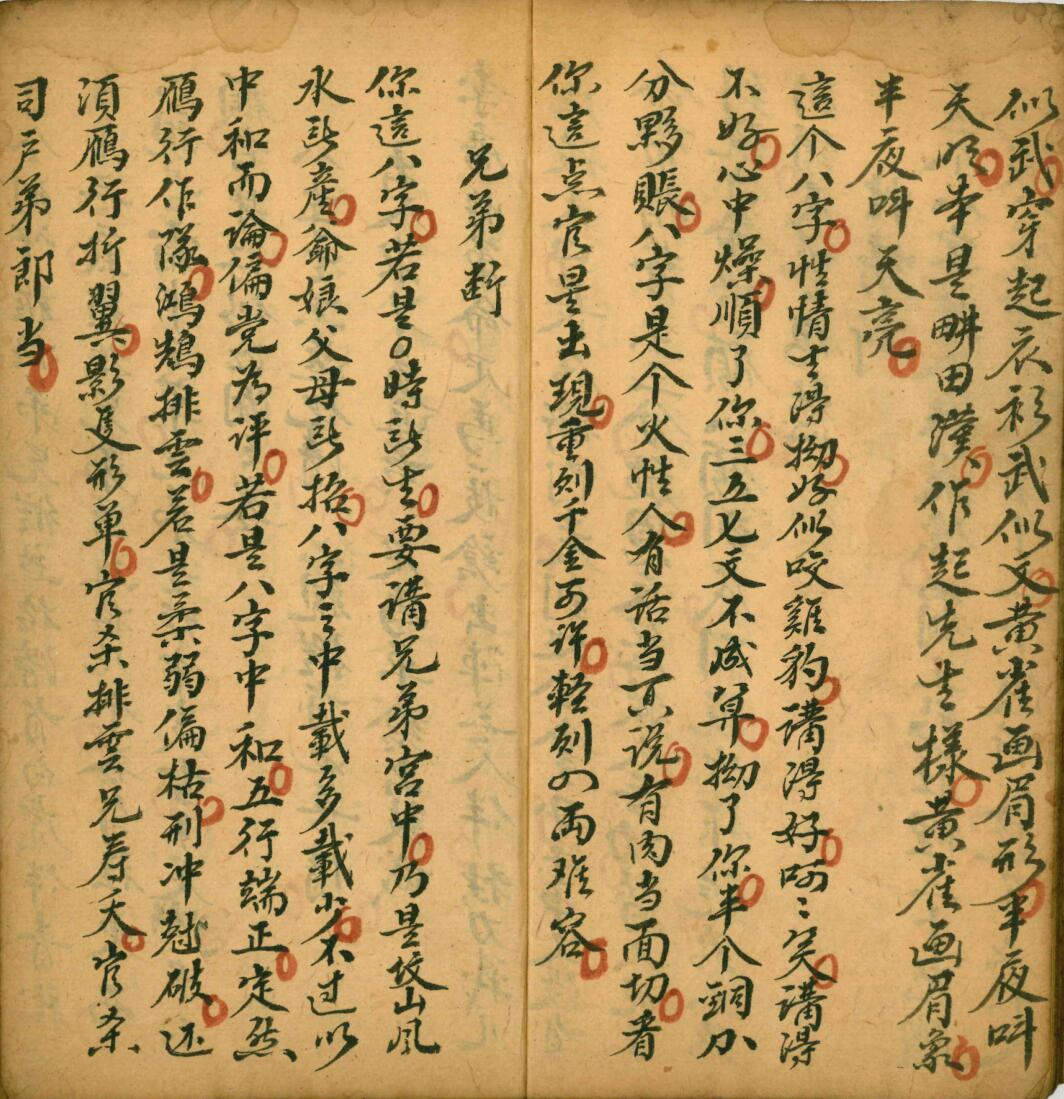 似武穿起衣衫武似文黄雀画眉形半夜叫
天明本是畊田漢作起先生樣黄雀画眉象
半夜叫天亮
這个八字性情生得拗好似咬雞豹講得好呵〻笑講得
不好心中燥順了你三五七文不成算拗了你半个銅刀
分夥賬八字是个火性人有话当面说有肉当面切看
你這点官星出現重则千金可許輕则四両难容
兄弟断
你這八字若是〇時所生要講兄弟宮中乃是坟山風
水所產爺娘父母所招八字之中載多載少不过以
中和而論偏党为評若是八字中和五行端正定然
鴈行作隊鴻鵠排雲若是柔弱偏枯刑冲尅破还
須鴈行折翼影隻形单官杀排雲兄寿夭官杀
司户弟郎当